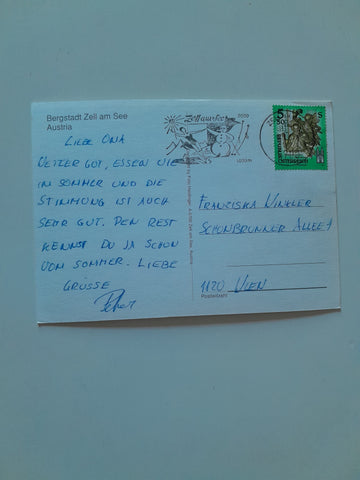 Bergstadt Zell am See
Austria
LIEBE OMA
WETTER GUT, ESSEN WIE
IM SOMMER UND DIE
STIMMUNG IST AUCH
SEHR GUT. DEN REST
KENNST DU JA SCHON
VOM SOMMER. LIEBE
GRÜSSE
Peter
Zell am See
5
S
FRANZISKA WINKLER
SCHÖNBRUNNER ALLEE
1120 WIEN
Postleitzahl